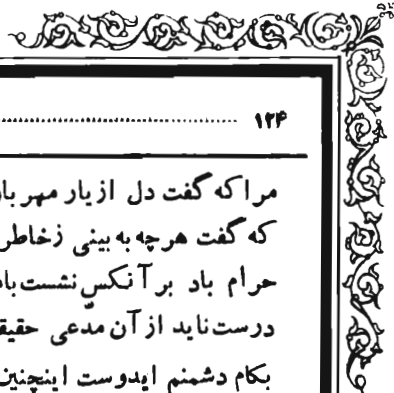 ۱۲۴
مرا که گفت دل از یار مهربان
که گفت هرچه به بینی زخاطر
حرام باد بر آنکس نشست با
درست ناید از آن مدّعی حقیق
بکام دشمنم ایدوست اینچنین